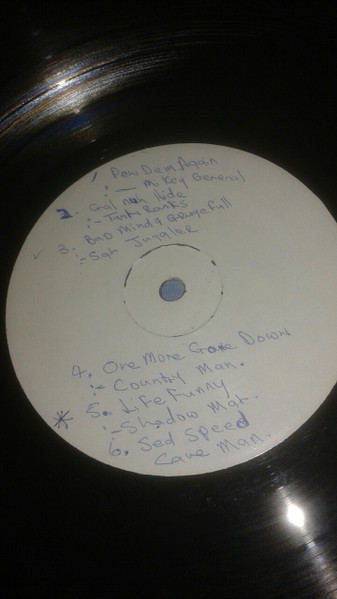 1 Dew Dem Again
:- Mikey General
2. Gal nah hide
:- Tanty Ranks
3. Bad Mind & Grugefull
:- Sgh Juggler
4. One More Gone Down
:- Country Man.
5. Life Funny
:- Shadow Man.
6. Sed Speed
Cave Man.